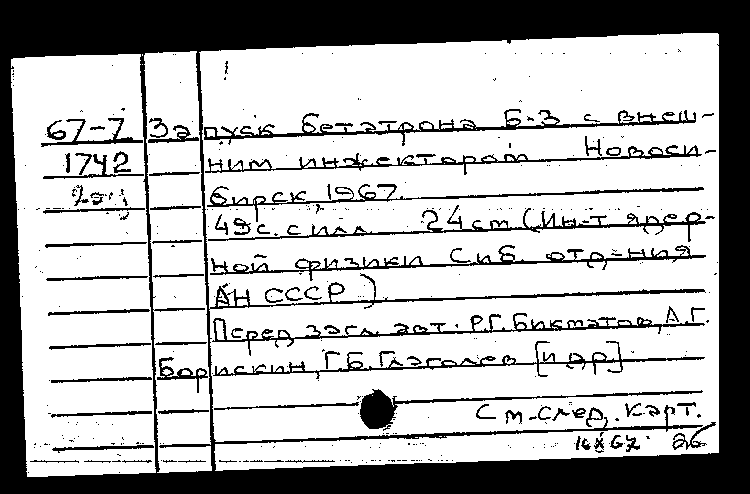 67-7 Запуск бетатрона Б-3 с внеш-
1742 ним инжектором Новоси-
2эқз бирск, 1967.
49 с. с илл. 24 см (Ин-т ядер-
ной физики Сиб. отд-ния
АН СССР).
Перед загл. авт.: Р.Г. Бикматов, А.Г.
Борискин, Г.Б. Глаголев [и др]
См. след. карт.
16 X 67. 26